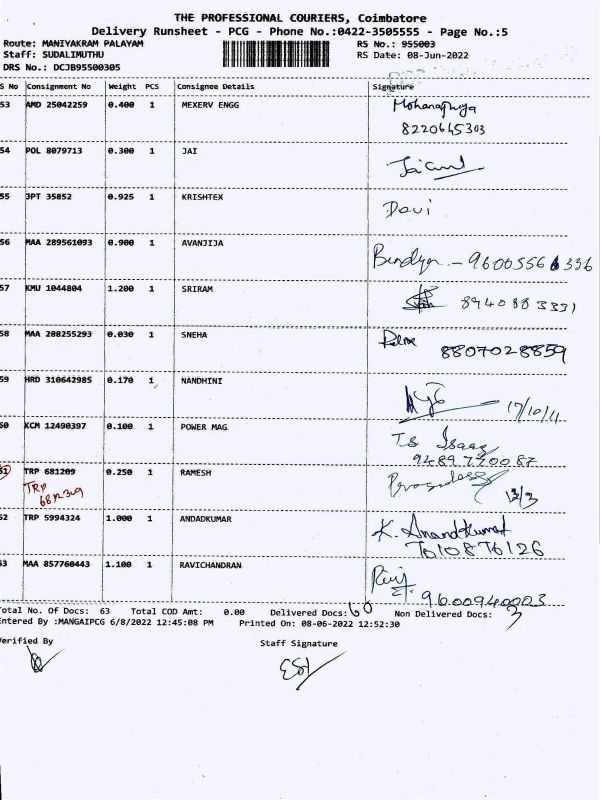 THE PROFESSIONAL COURIERS, Coimbatore
Delivery Runsheet - PCG - Phone No.:0422-3505555 - Page No.:5
Route: MANIYAKRAM PALAYAM RS No.: 955003
Staff: SUDALIMUTHU RS Date: 08-Jun-2022
DRS No.: DCJB95500305
S No Consignment No Weight PCS Consignee Details Signature
53 AMD 25042259 0.400 1 MEXERV ENGG
8220645303
54 POL 8079713 0.300 1 JAI
55 JPT 35852 0.925 1 KRISHTEX Devi
56 MAA 289561093 0.900 1 AVANJIJA
57 KMU 1044804 1.200 1 SRIRAM 8940883331
58 MAA 288255293 0.030 1 SNEHA
8807028859
59 HRD 310642985 0.170 1 NANDHINI
17/10/11
60 KCM 12490397 0.100 1 POWER MAG
61 TRP 681209 0.250 1 RAMESH
TRP
62 TRP 5994324 1.000 1 ANDADKUMAR K. Anandkumar
7610876126
63 MAA 857760443 1.100 1 RAVICHANDRAN
9600940003
Total No. Of Docs: 63 Total COD Amt: 0.00 Delivered Docs: 60 Non Delivered Docs: 3
Entered By :MANGAIPCG 6/8/2022 12:45:08 PM Printed On: 08-06-2022 12:52:30
Verified By Staff Signature